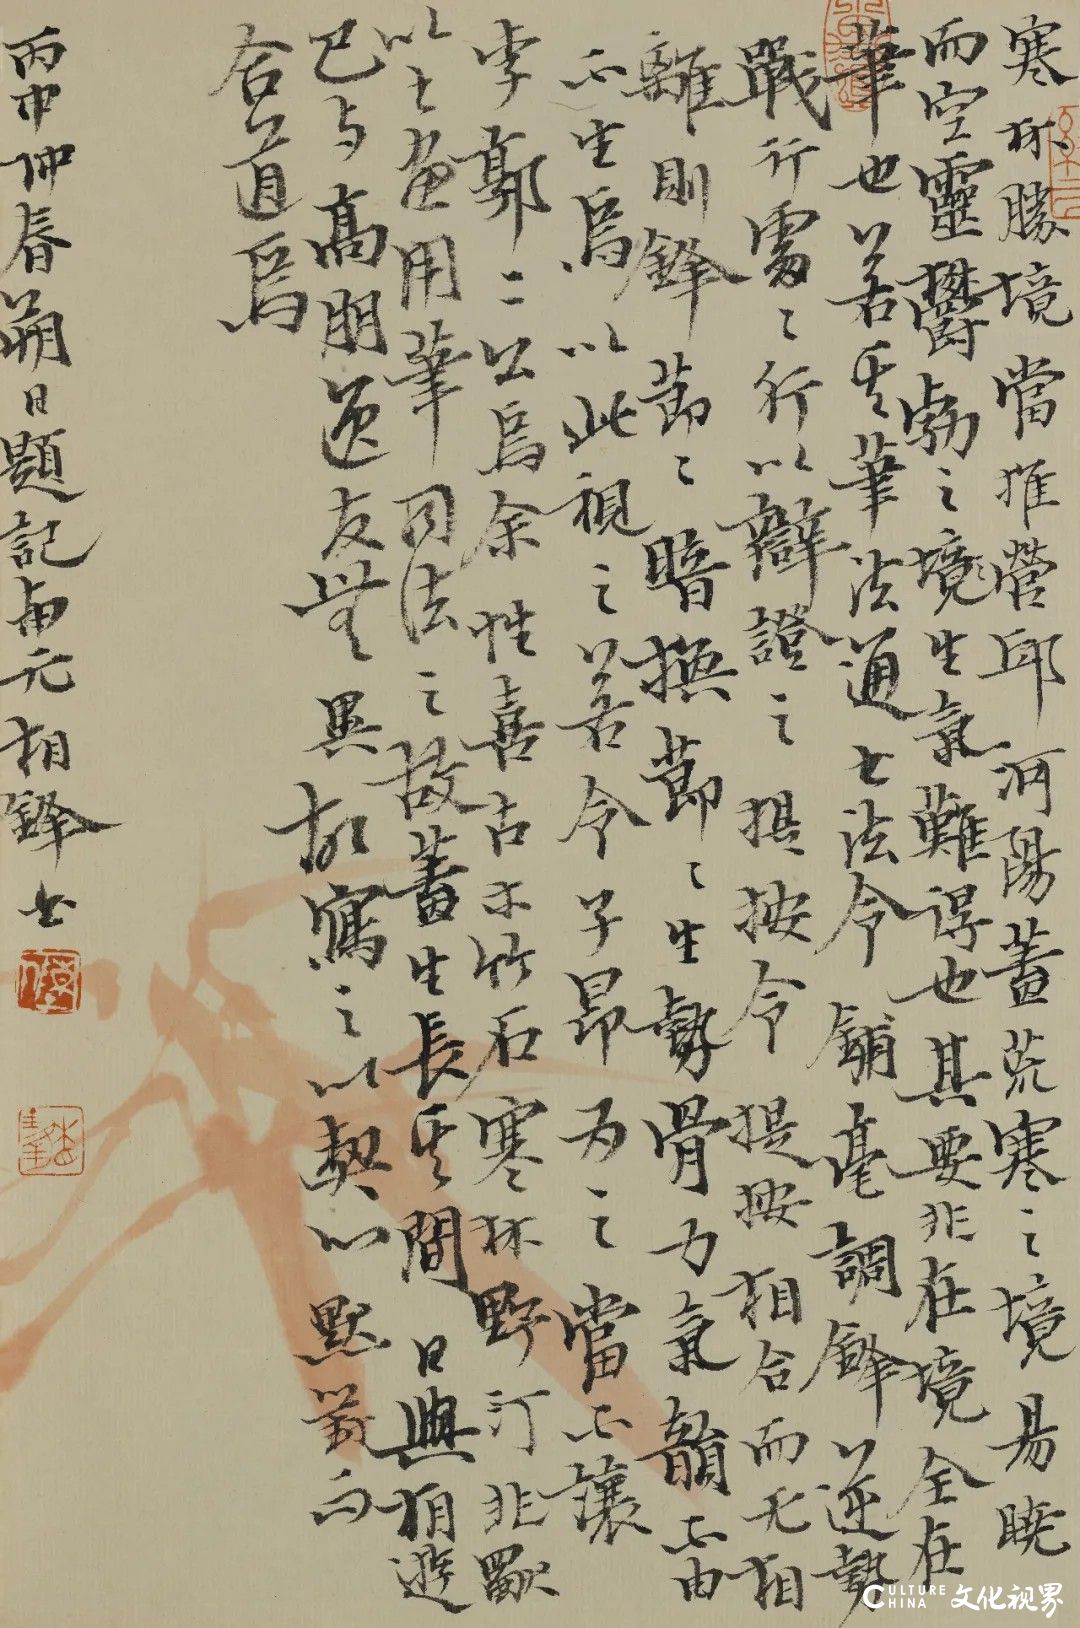 寒林勝境當推營邱河陽蓋荒寒之境易曉
而空靈鬱勃之境生氣難得也其要非在境全在
筆也若其筆法通七法令鋪毫調鋒以逆勢
戰行處〻行以辯證之提按令提按相合而无相
離則鋒節〻暗撫節〻生勢骨力氣韻不由
不生焉以此視之若令子昂为之當不讓
李郭二公焉余性喜古木竹石寒林野汀非
以士画用筆同法之故蓋生長其間日與相遊
已与高朋逸友無異故寫之以契心默對而
合道焉
丙申仲春朔日題記元相鋒书
CULTURE CHINA 文化视界